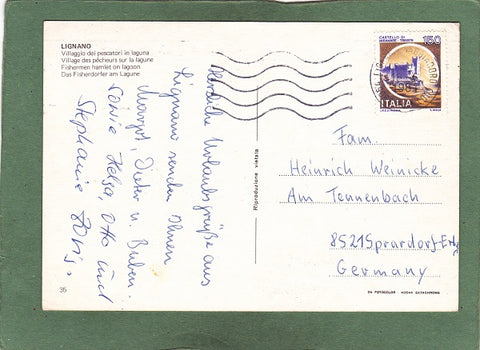 LIGNANO
Villaggio dei pescatori in laguna
Village des pêcheurs sur la lagune
Fishermen hamlet on lagoon
Das Fisherdorfer am Lagune
Herzliche Urlaubsgrüße aus
Lignano senden Ihnen
Margot, Dieter u. Buben.
sowie Helga, Otto und
Stephanie
35
Riproduzione vietata
CASTELLO DI
MIRAMARE TRIESTE
150
ITALIA
Fam.
Heinrich Weinicke
Am Tennenbach
8521 Sprardorf-Erlg
Germany